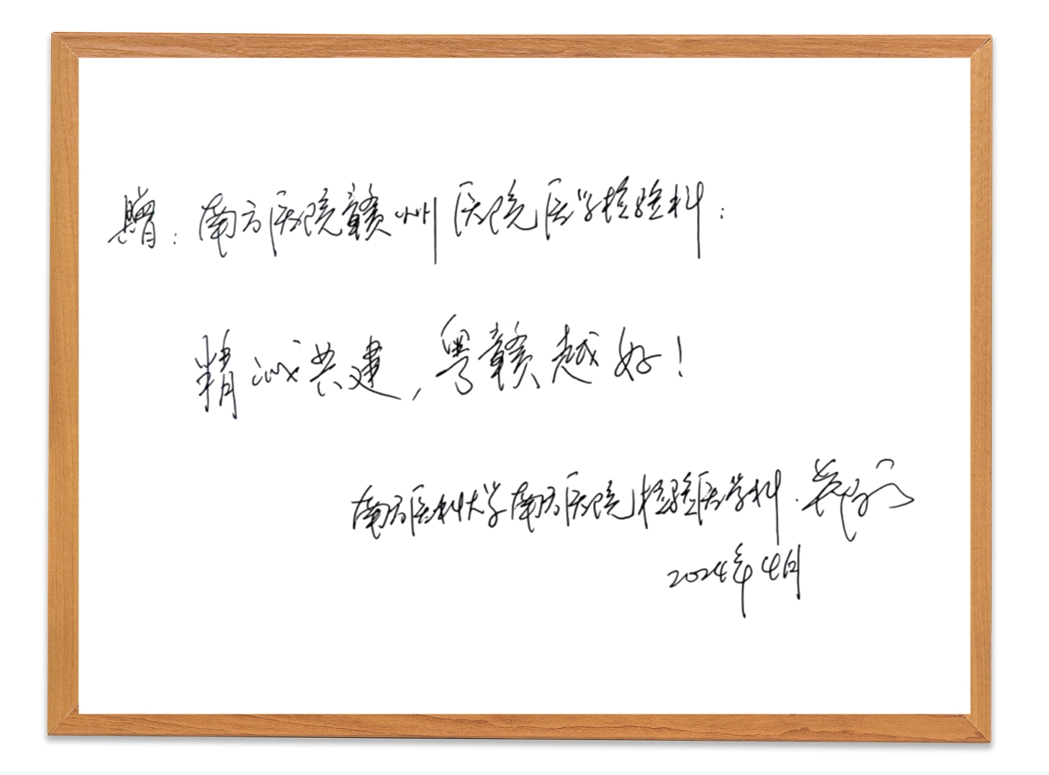 赠：南方医院赣州医院医学检验科：
精诚共建，粤赣越好！
南方医科大学南方医院检验医学科
2024年4月